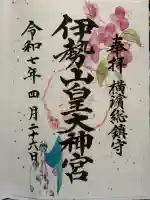 奉拝 横濱総鎮守
伊勢山皇大神宮
令和七年四月二十六日